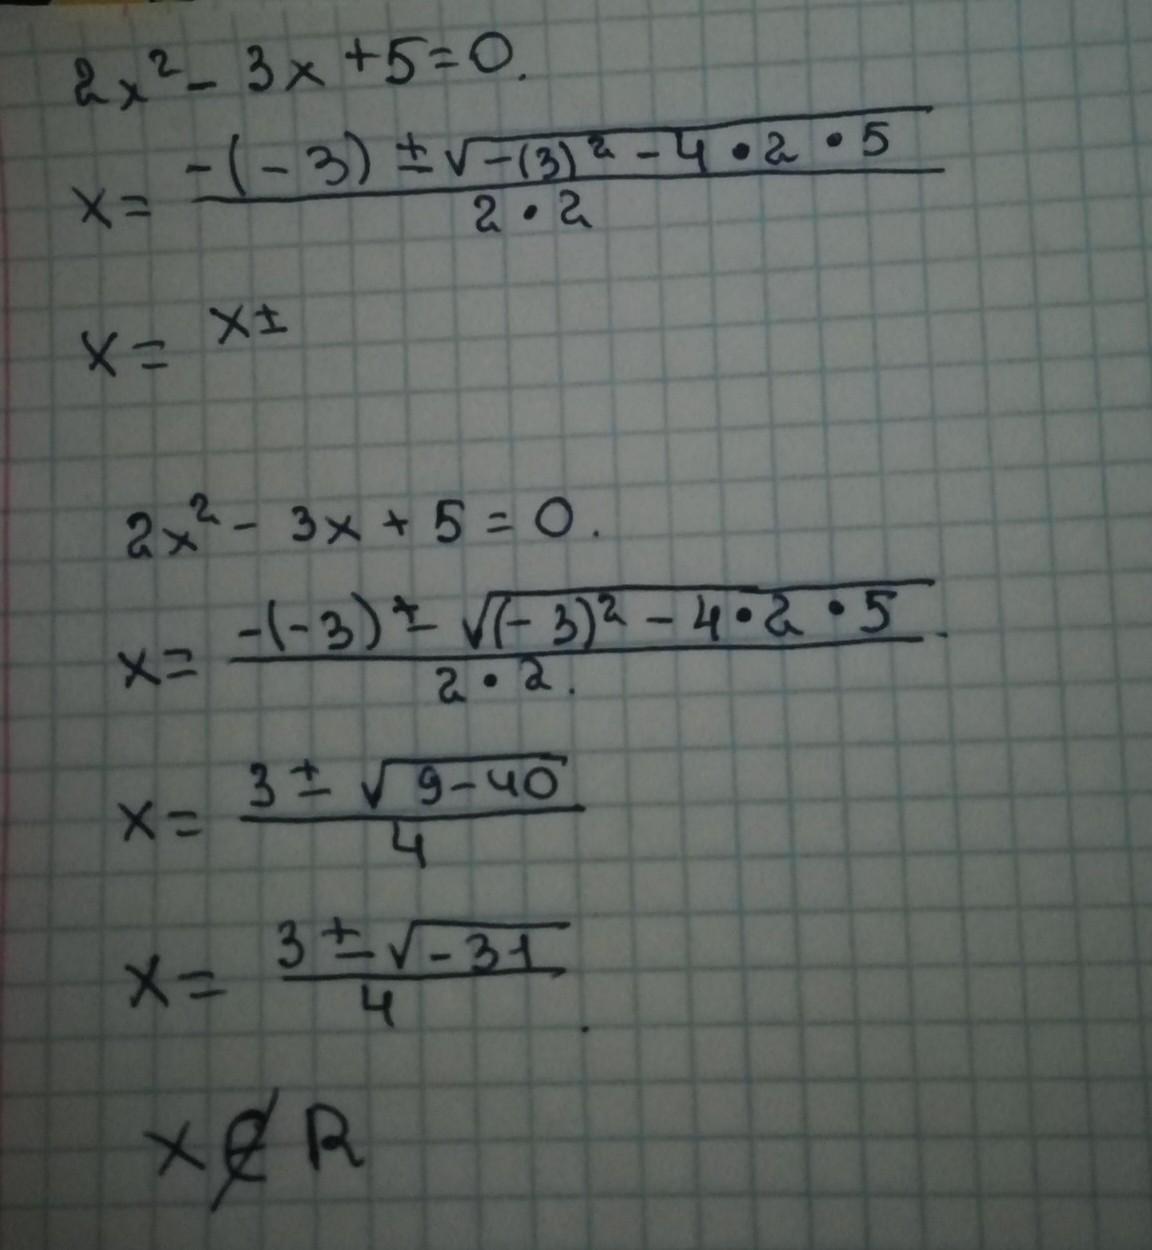 2x² - 3x + 5 = 0.
x = (-(-3) ± √(-(3)² - 4 • 2 • 5)) / (2 • 2)
x = x ±
2x² - 3x + 5 = 0.
x = (-(-3) ± √((-3)² - 4 • 2 • 5)) / (2 • 2).
x = (3 ± √(9 - 40)) / 4
x = (3 ± √(-31)) / 4.
x ∉ R